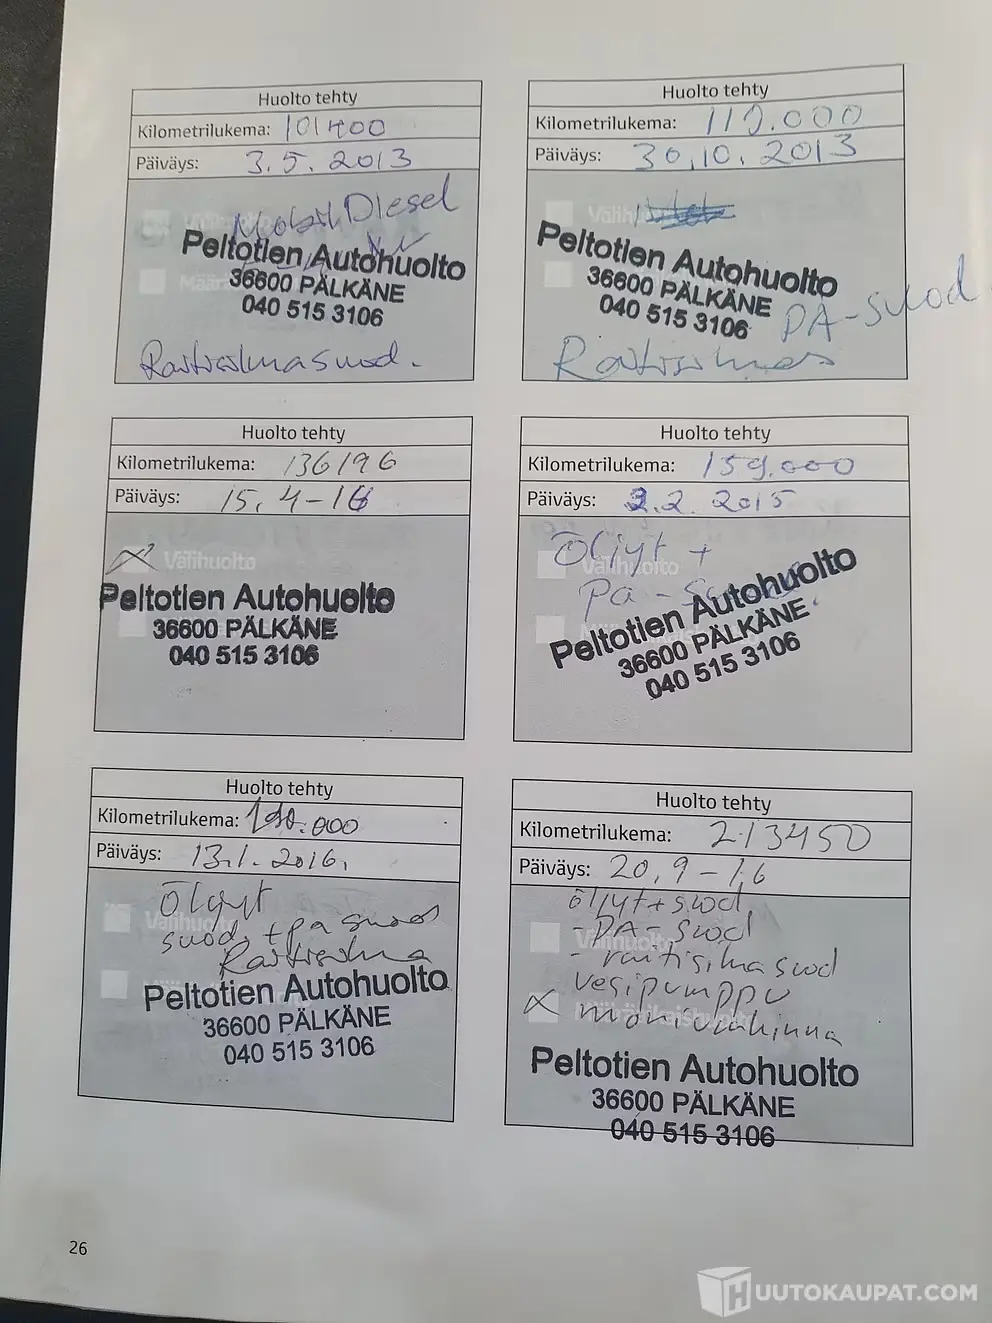 Huolto tehty
Kilometrilukema: 101400
Päiväys: 3.5. 2013
Mobil Diesel
Peltotien Autohuolto
36600 PÄLKÄNE
040 515 3106
Raitisilmasuod.
Huolto tehty
Kilometrilukema: 119.000
Päiväys: 30.10. 2013
Peltotien Autohuolto
36600 PÄLKÄNE
040 515 3106
PA-suod
Huolto tehty
Kilometrilukema: 136196
Päiväys: 15.4-16
Välihuolto
Peltotien Autohuolto
36600 PÄLKÄNE
040 515 3106
Huolto tehty
Kilometrilukema: 159.000
Päiväys: 2.2. 2015
Öljyt +
Välihuolto
Pa -
Peltotien Autohuolto
36600 PÄLKÄNE
040 515 3106
Huolto tehty
Kilometrilukema: 190.000
Päiväys: 13.1. 2016.
Öljyt
suod, + pa suod
Raitisilma
Peltotien Autohuolto
36600 PÄLKÄNE
040 515 3106
Huolto tehty
Kilometrilukema: 213450
Päiväys: 20.9-16
öljyt+suod,
- PA- suod
- raitisilma suod
vesipumppu
x moniurahihna
Peltotien Autohuolto
36600 PÄLKÄNE
040 515 3106
26
HUUTOKAUPAT.COM